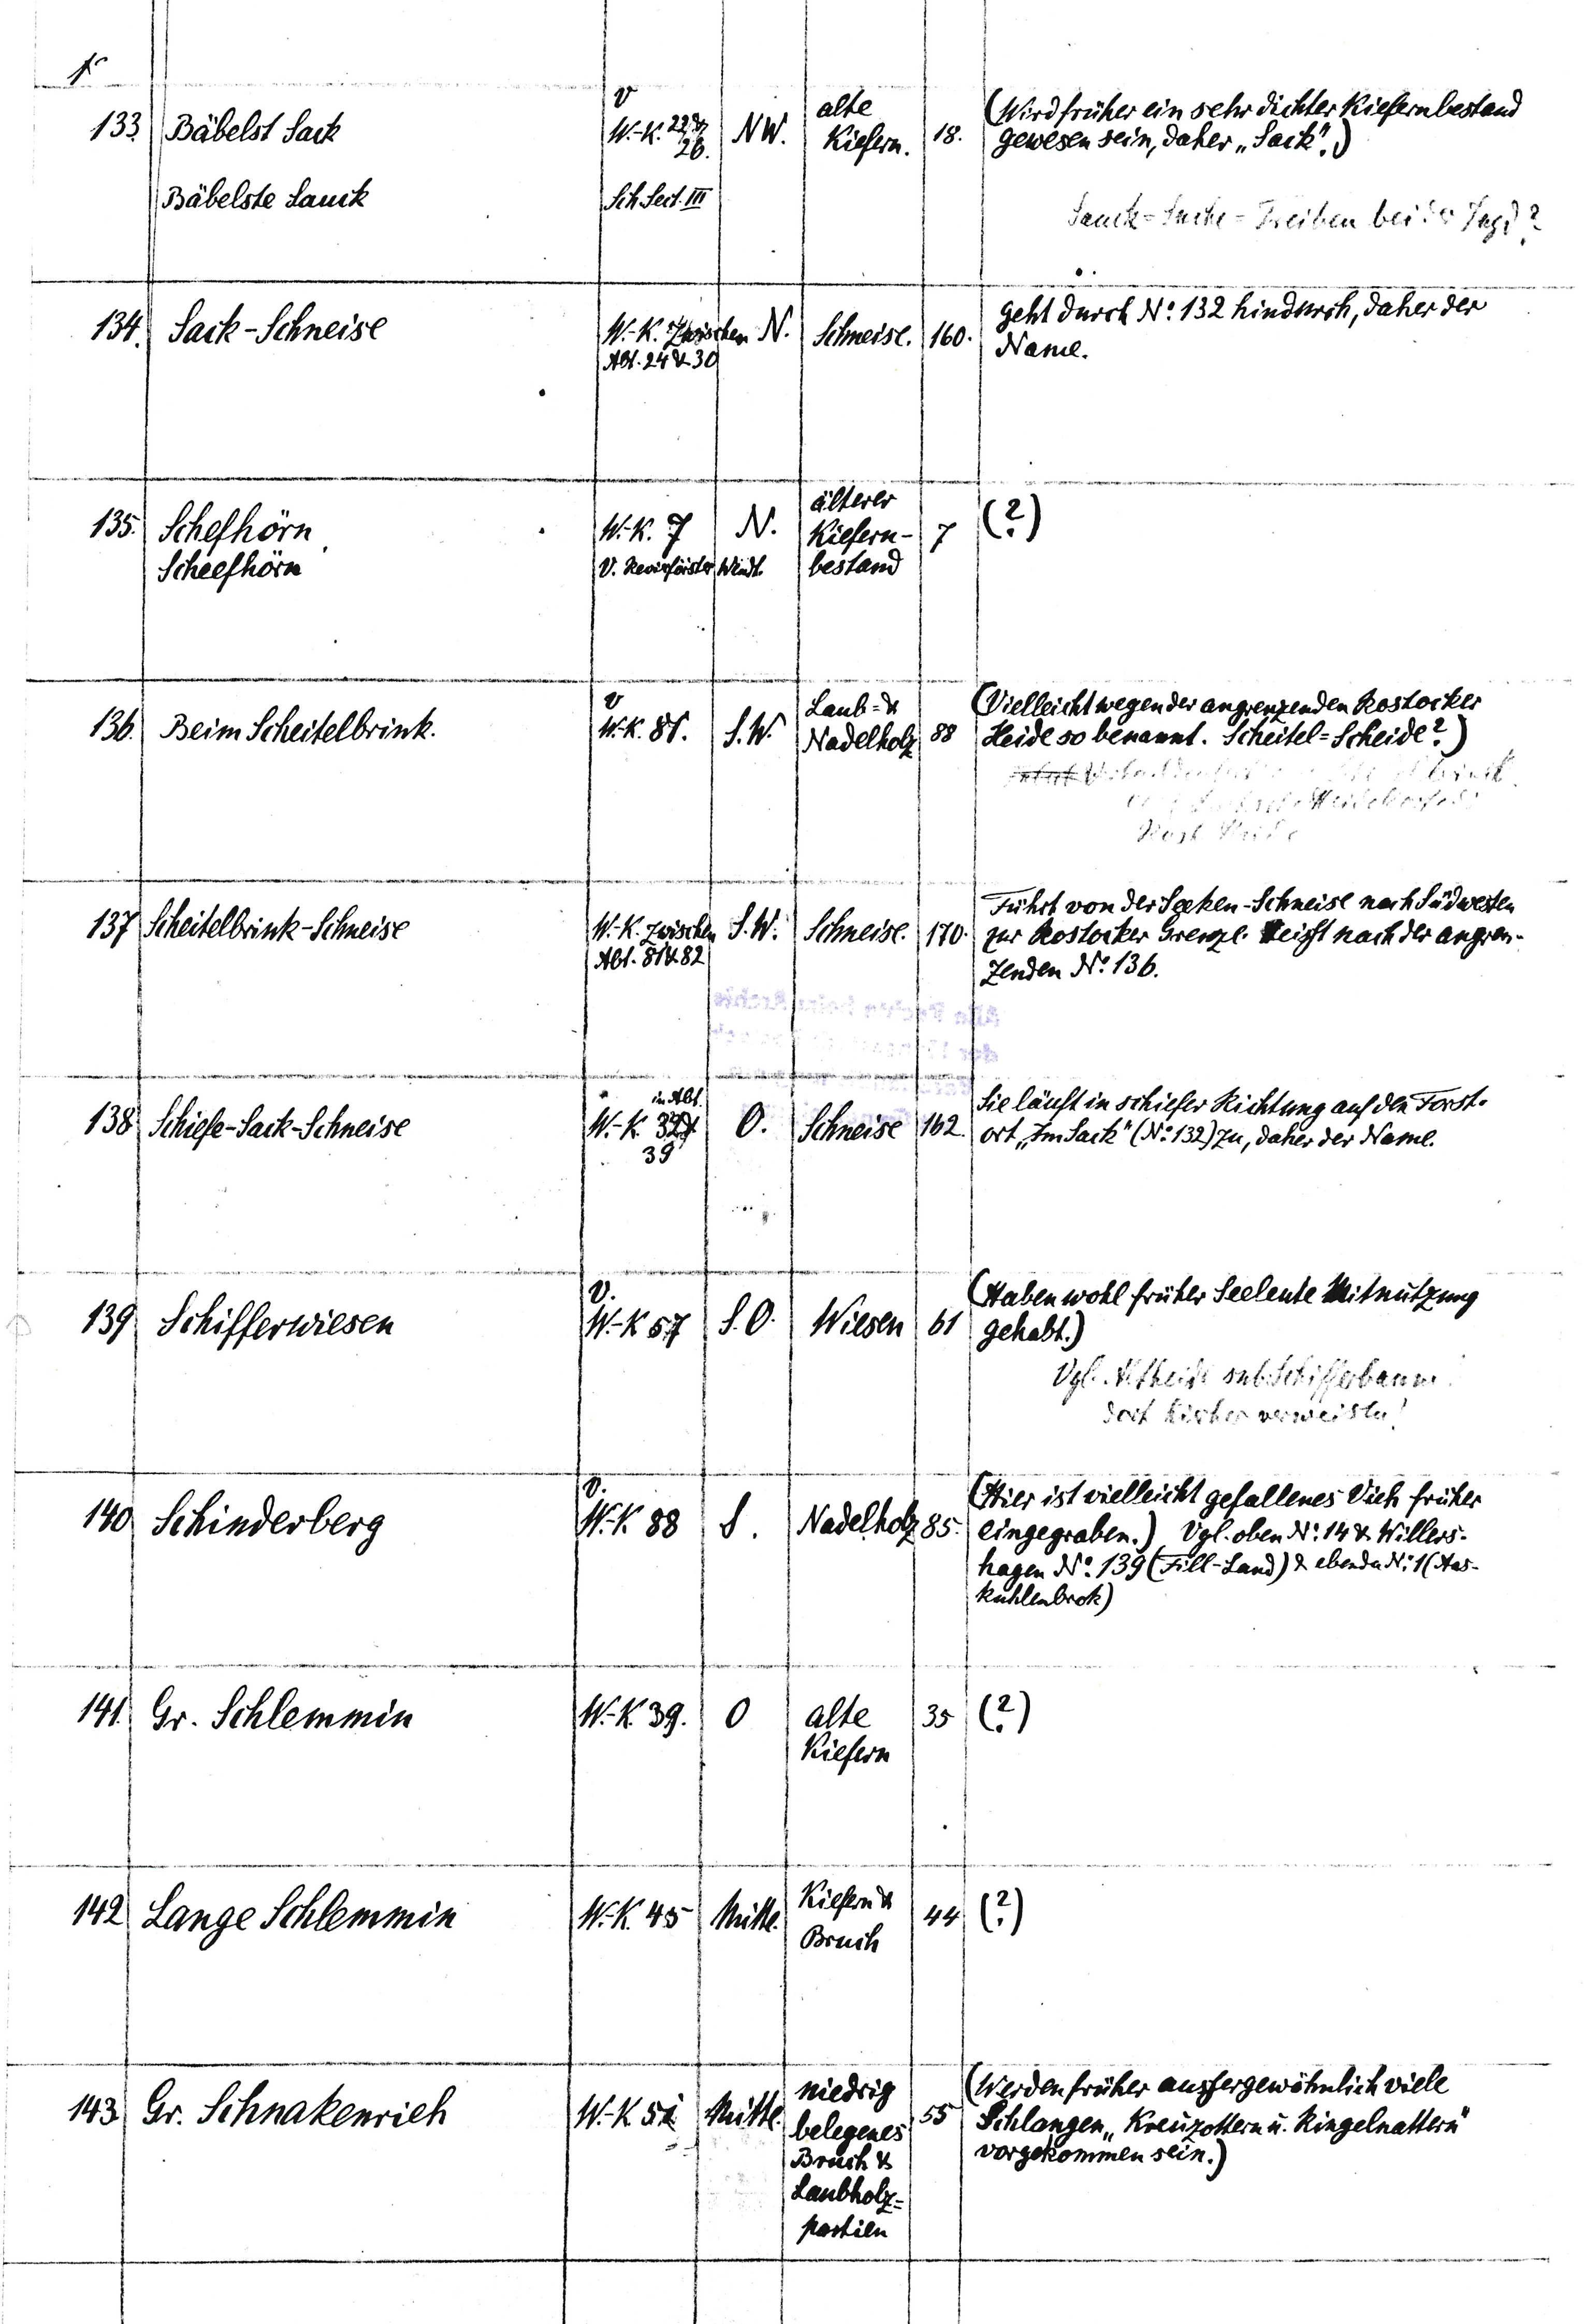 133. Bäbelst Sack V W.-K. 22 & 26. NW. alte Kiefern. 18. (Wird früher ein sehr dichter Kiefernbestand
gewesen sein, daher „Sack“.)
Bäbelste Sauck Sch. Sect. III
Sauck = Suche = Treiben bei der Jagd?
134. Sack-Schneise W.-K. zwischen N. Schneise. 160. geht durch No. 132 hindurch, daher der
Abt. 24 & 30 Name.
135. Schefhörn W.-K. 7 N. älterer Kiefern- 7 (?)
Scheefhörn V. Revierförster Windt. bestand
136. Beim Scheitelbrink. V W.-K. 81. S.W. Laub- & Nadelholz 88 (Vielleicht wegen der angrenzenden Rostocker
Heide so benannt. Scheitel = Scheide?)
137 Scheitelbrink-Schneise W.-K. zwischen S.W. Schneise. 170. Führt von der Seeken-Schneise nach Südwesten
Abt. 81 & 82 zur Rostocker Grenze. Heißt nach der angren-
zenden No. 136.
138 Schiefe-Sack-Schneise in Abt. W.-K. 39 O. Schneise 162. Sie läuft in schiefer Richtung auf den Forst-
ort „Im Sack“ (No. 132) zu, daher der Name.
139 Schifferwiesen V. W.-K 57 S.O. Wiesen 61 (Haben wohl früher Seeleute Mitnutzung
gehabt.)
Vgl. Altheide sub Schifferbaum.
dort hierher verweisen!
140 Schinderberg V. W.-K. 88 S. Nadelholz 85. (Hier ist vielleicht gefallenes Vieh früher
eingegraben.) Vgl. oben No. 14 & Willers-
hagen No. 139 (Fill-Land) & ebenda No. 1 (Aas-
kuhlenbrok)
141. Gr. Schlemmin W.-K. 39. O alte 35 (?)
Kiefern
142 Lange Schlemmin W.-K. 45 Mitte. Kiefern & 44 (?)
Bruch
143 Gr. Schnakenrieh W.-K 51 Mitte. niedrig 55 (Werden früher aussergewöhnlich viele
belegenes Schlangen „Kreuzottern u. Ringelnattern“
Bruch & vorgekommen sein.)
Laubholz-
partien